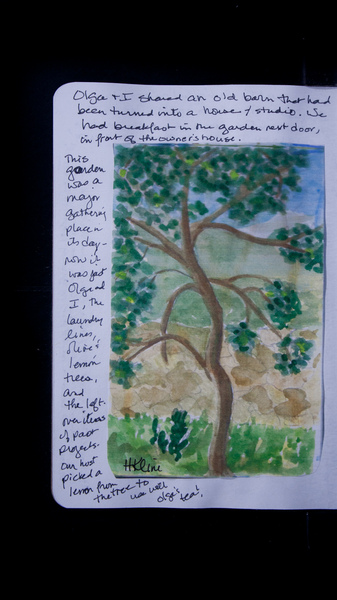 Olga & I shared an old barn that had
been turned into a house / studio. We
had breakfast in the garden next door,
in front of the owner's house.
This
garden
was a
major
gathering
place in
its day -
now it
was just
Olga and
I, the
laundry
lines,
olive &
lemon
trees,
and
the left-
over ideas
of past
projects.
Our host
picked a
lemon from
the tree to
use with
Olga's
tea!
HKline